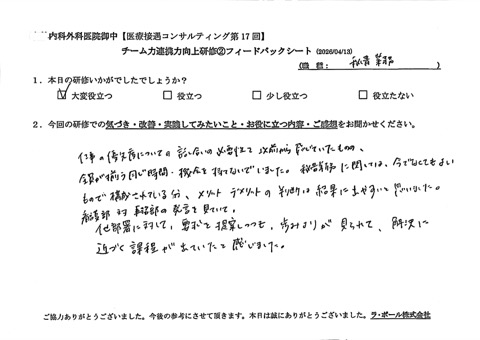 内科外科医院御中【医療接遇コンサルティング第17回】
チーム力連携力向上研修②フィードバックシート (2026/04/13)
(職 種: 秘書 業務 )
1．本日の研修いかがでしたでしょうか？
☑ 大変役立つ □ 役立つ □ 少し役立つ □ 役立たない
2．今回の研修での気づき・改善・実践してみたいこと・お役に立つ内容・ご感想をお聞かせください。
仕事の優先度についての話し合いの必要性を以前から感じていたものの、
全員が揃う同じ時間・機会を持てないでいました。秘書業務に関しては、今でなくてもよい
もので構成されている分、メリット デメリットの判断は結果に出やすいと思いました。
秘書部 対 事務部の発言を見ていて、
他部署に対して、要求と提案しつつも、歩みよりが見られて、解決に
近づく課程が出ていたと感じました。
ご協力ありがとうございました。今後の参考にさせて頂きます。本日は誠にありがとうございました。ラ・ポール株式会社